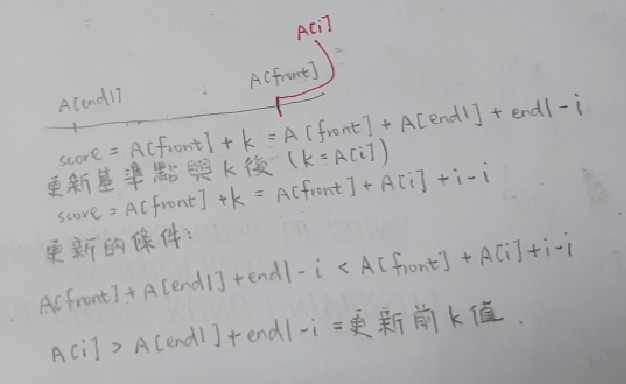 A[i]
A[end1] A[front]
score = A[front] + k = A[front] + A[end1] + end1 - i
更新基準點與k後 (k = A[i])
score = A[front] + k = A[front] + A[i] + i - i
更新的條件:
A[front] + A[end1] + end1 - i < A[front] + A[i] + i - i
A[i] > A[end1] + end1 - i = 更新前k值.